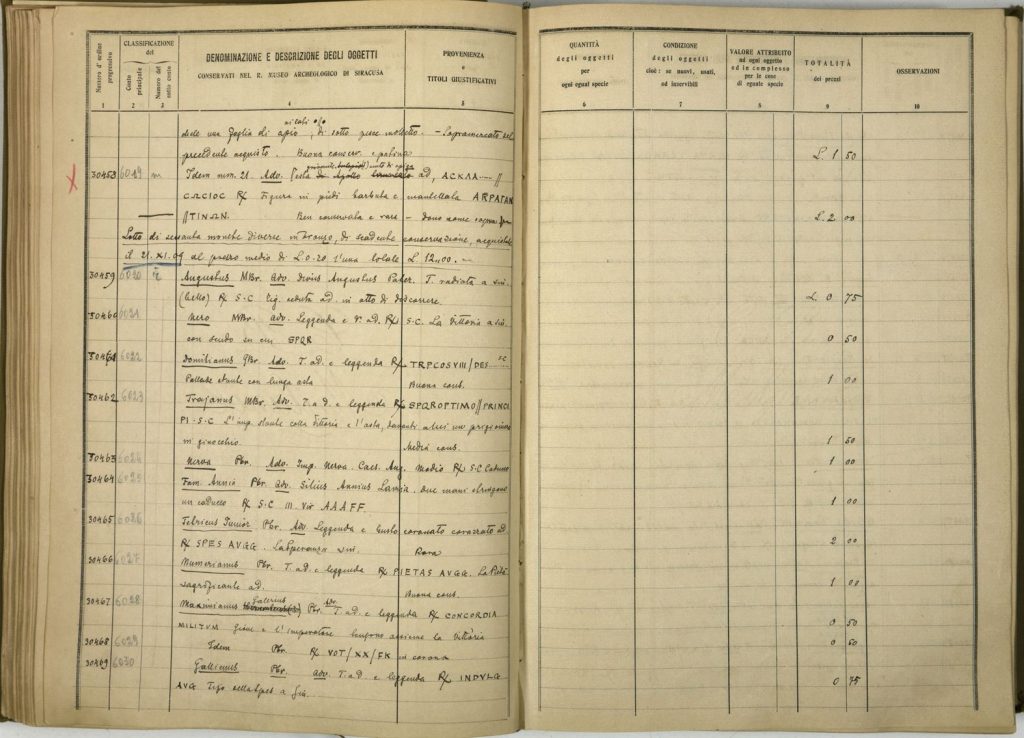 Numero d'ordine progressivo
CLASSIFICAZIONE
del
Conto principale
Numero del sotto conto
DENOMINAZIONE E DESCRIZIONE DEGLI OGGETTI
CONSERVATI NEL R. MUSEO ARCHEOLOGICO DI SIRACUSA
PROVENIENZA
e
TITOLI GIUSTIFICATIVI
QUANTITÀ
degli oggetti
per
ogni egual specie
CONDIZIONE
degli oggetti
cioè: se nuovi, usati,
od inservibili
VALORE ATTRIBUITO
ad ogni oggetto
od in complesso
per le cose
di eguale specie
TOTALITÀ
dei prezzi
OSSERVAZIONI
1 2 3 4 5 6 7 8 9 10
una foglia di apio, di sotto pesce molletto. - Sopramercato del
precedente acquisto. Buona conserv. e patina L. 1 50
30458 6019 Idem mm. 21. Adv. Testa ad, ΑСΚΛΑ
СΩСΙΟС R/ Figura in piedi barbata e mantellata ARPATAN
// TINΩN. Ben conservata e rara - L. 2 00
Lotto di sessanta monete diverse in bronzo, di scadente conservazione, acquistate
il 21. XI. 09 al prezzo medio di L. 0.20 l'una totale L. 12,00. -
30459 6020 Augustus MBr. Adv. Divus Augustus Pater. T. radiata a sin.
(bello) R/ S·C Fig. seduta ad. in atto di discorrere. L. 0 75
30460 6021 Nero MBr. Adv. Leggenda e T. ad. R/ S·C. La Vittoria a sin.
con scudo su cui SPQR 0 50
30461 6022 Domitianus Adv. T. ad. e leggenda R/ TRPCOSVIII/DES S·C
Pallade stante con lunga asta Buona cons. 1 00
30462 6023 Trajanus MBr. Adv. T. a d. e leggenda R/ SPQROPTIMO // PRINCI
PI·S·C L'imp. stante colla Vittoria e l'asta, davanti a lui un prigioniero
in ginocchio. Media cons. 1 50
30463 6024 Nerva Pbr. Adv. Imp. Nerva Caes. Aug. Modio R/ S·C Caduceo 1 00
30464 6025 Fam. Annia Pbr. Adv. Silius Annius Lamia. Due mani stringono
un caduceo R/ S·C III Vir AAAFF. 1 00
30465 6026 Tetricus Junior Pbr. Adv Leggenda e busto coronato corazzato ad.
R/ SPES AVGG. La Speranza a sin. Rara 2 00
30466 6027 Numerianus Pbr. T. ad. e leggenda R/ PIETAS AVGG. La Pietà
sagrificante ad. Buona cons. 1 00
30467 6028 Maximianus Galerius Pbr. Adv. T. ad. e leggenda R/ CONCORDIA
MILITVM Giove e l'imperatore tengono assieme la Vittoria 0 50
30468 6029 Idem Pbr. R/ VOT/XX/FK in corona 0 50
30469 6030 Gallienus Pbr. Adv. T. ad. e leggenda R/ INDVLG
AVG Tipo della Spes a 0 75